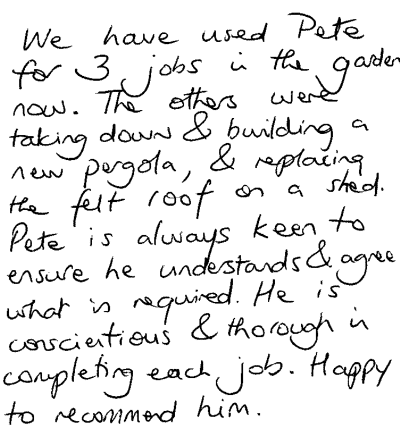 We have used Pete
for 3 jobs in the garden
now. The others were
taking down & building a
new pergola, & replacing
the felt roof on a shed.
Pete is always keen to
ensure he understands & agree
what is required. He is
conscientious & thorough in
completing each job. Happy
to recommend him.